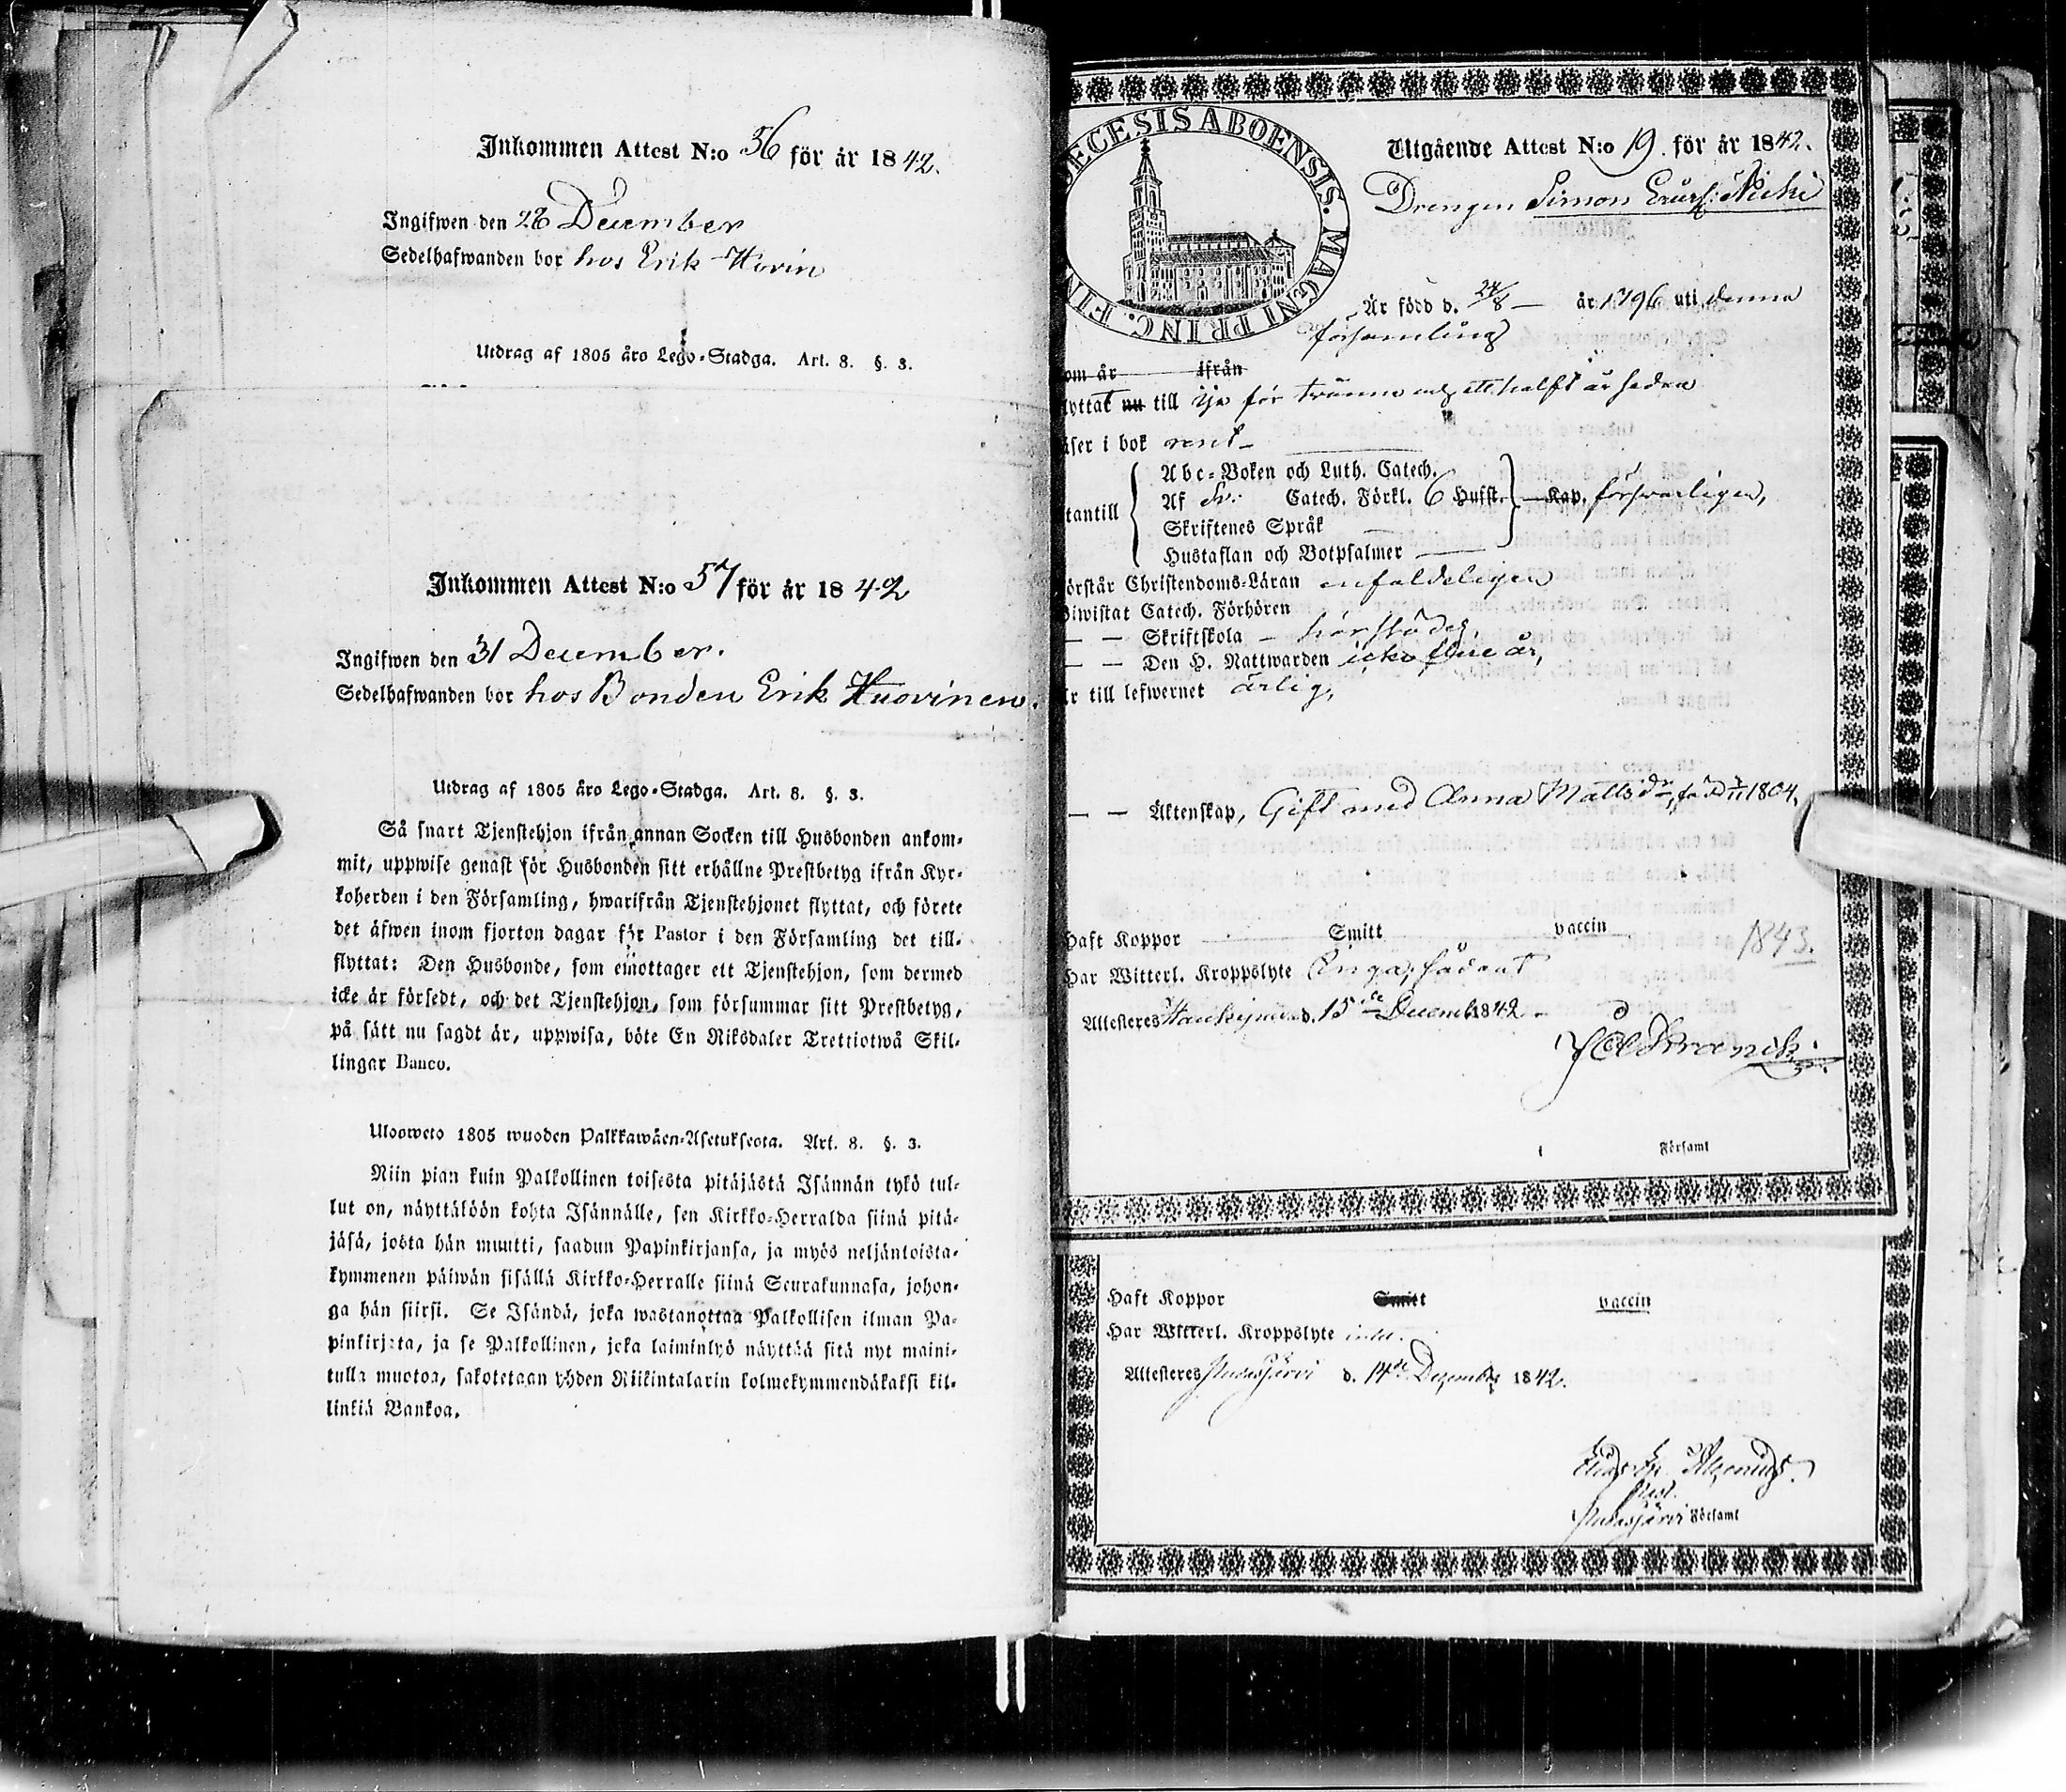 Inkommen Attest N:o 56 för år 1842.
Ingifwen den 28 December
Sedelhafwanden bor hos Erik Hovin
Utdrag af 1805 års Lego-Stadga. Art. 8. §. 3.
Inkommen Attest N:o 57 för år 1842
Ingifwen den 31 December.
Sedelhafwanden bor hos Bonden Erik Huovinen.
Utdrag af 1805 års Lego-Stadga. Art. 8. §. 3.
Så snart Tjenstehjon ifrån annan Socken till Husbonden ankom-
mit, uppwise genast för Husbonden sitt erhållne Prestbetyg ifrån Kyr-
koherden i den Församling, hwarifrån Tjenstehjonet flyttat, och förete
det äfwen inom fjorton dagar för Pastor i den Församling det till-
flyttat: Den Husbonde, som emottager ett Tjenstehjon, som dermed
icke är försedt, och det Tjenstehjon, som försummar sitt Prestbetyg,
på sätt nu sagdt är, uppwisa, böte En Riksdaler Trettiotwå Skil-
lingar Banco.
Ulosweto 1805 wuoden Palkkawäen-Asetuksesta. Art. 8. §. 3.
Niin pian kuin Palkollinen toisesta pitäjästä Isännän tykö tul-
lut on, näyttäköön kohta Isännälle, sen Kirkko-Herralda siinä pitä-
jäsä, josta hän muutti, saadun Papinkirjansa, ja myös neljäntoista-
kymmenen päiwän sisällä Kirkko-Herralle siinä Seurakunnasa, johon-
ga hän siirsi. Se Isändä, joka wastanottaa Palkollisen ilman Pa-
pinkirjata, ja se Palkollinen, joka laiminlyö näyttää sitä nyt maini-
tulla muotoa, sakotetaan yhden Riikintalarin kolmekymmendäkaksi kil-
linkiä Bankoa.
ECESIS ABOENSIS. MAGNI PRINC. FIN
Utgående Attest N:o 19. för år 1842.
Drengen Simon
Är född d. 24/8 år 1796 uti denna
församling
om år ifrån
lyttat nu till Ijo för tvänne och ett halft år sedan
äser i bok rent
Abc-Boken och Luth. Catech.
Af Sv: Catech. Förkl. 6 Hufst. Kap. försvarligen,
tantill
Skriftenes Språk
Hustaflan och Botpsalmer
örstår Christendoms-Läran enfaldeligen
Biwistat Catech. Förhören
— — Skriftskola
— — Den H. Nattwarden icke flere år,
r till lefwernet ärlig,
— — Äktenskap, Gift med Anna Mattsdr, född 1804.
Haft Koppor Smitt vaccin
1843.
Har Witterl. Kroppslyte Inga,
Attesteres d. 15de Decemb 1842
Församl
Haft Koppor Smitt vaccin
Har Witterl. Kroppslyte intet.
Attesteres Pudasjärvi d. 14de Decembr 1842.
Past.
Pudasjärvi Församl